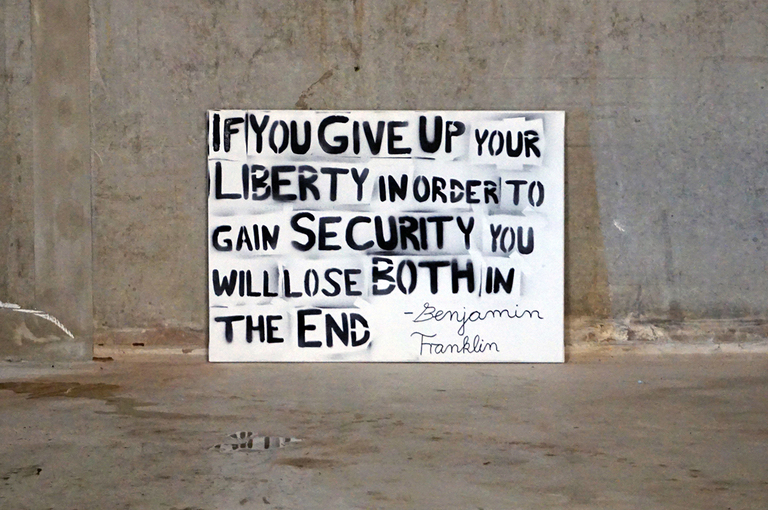 IF YOU GIVE UP YOUR
LIBERTY IN ORDER TO
GAIN SECURITY YOU
WILL LOSE BOTH IN
THE END
-Benjamin
Franklin